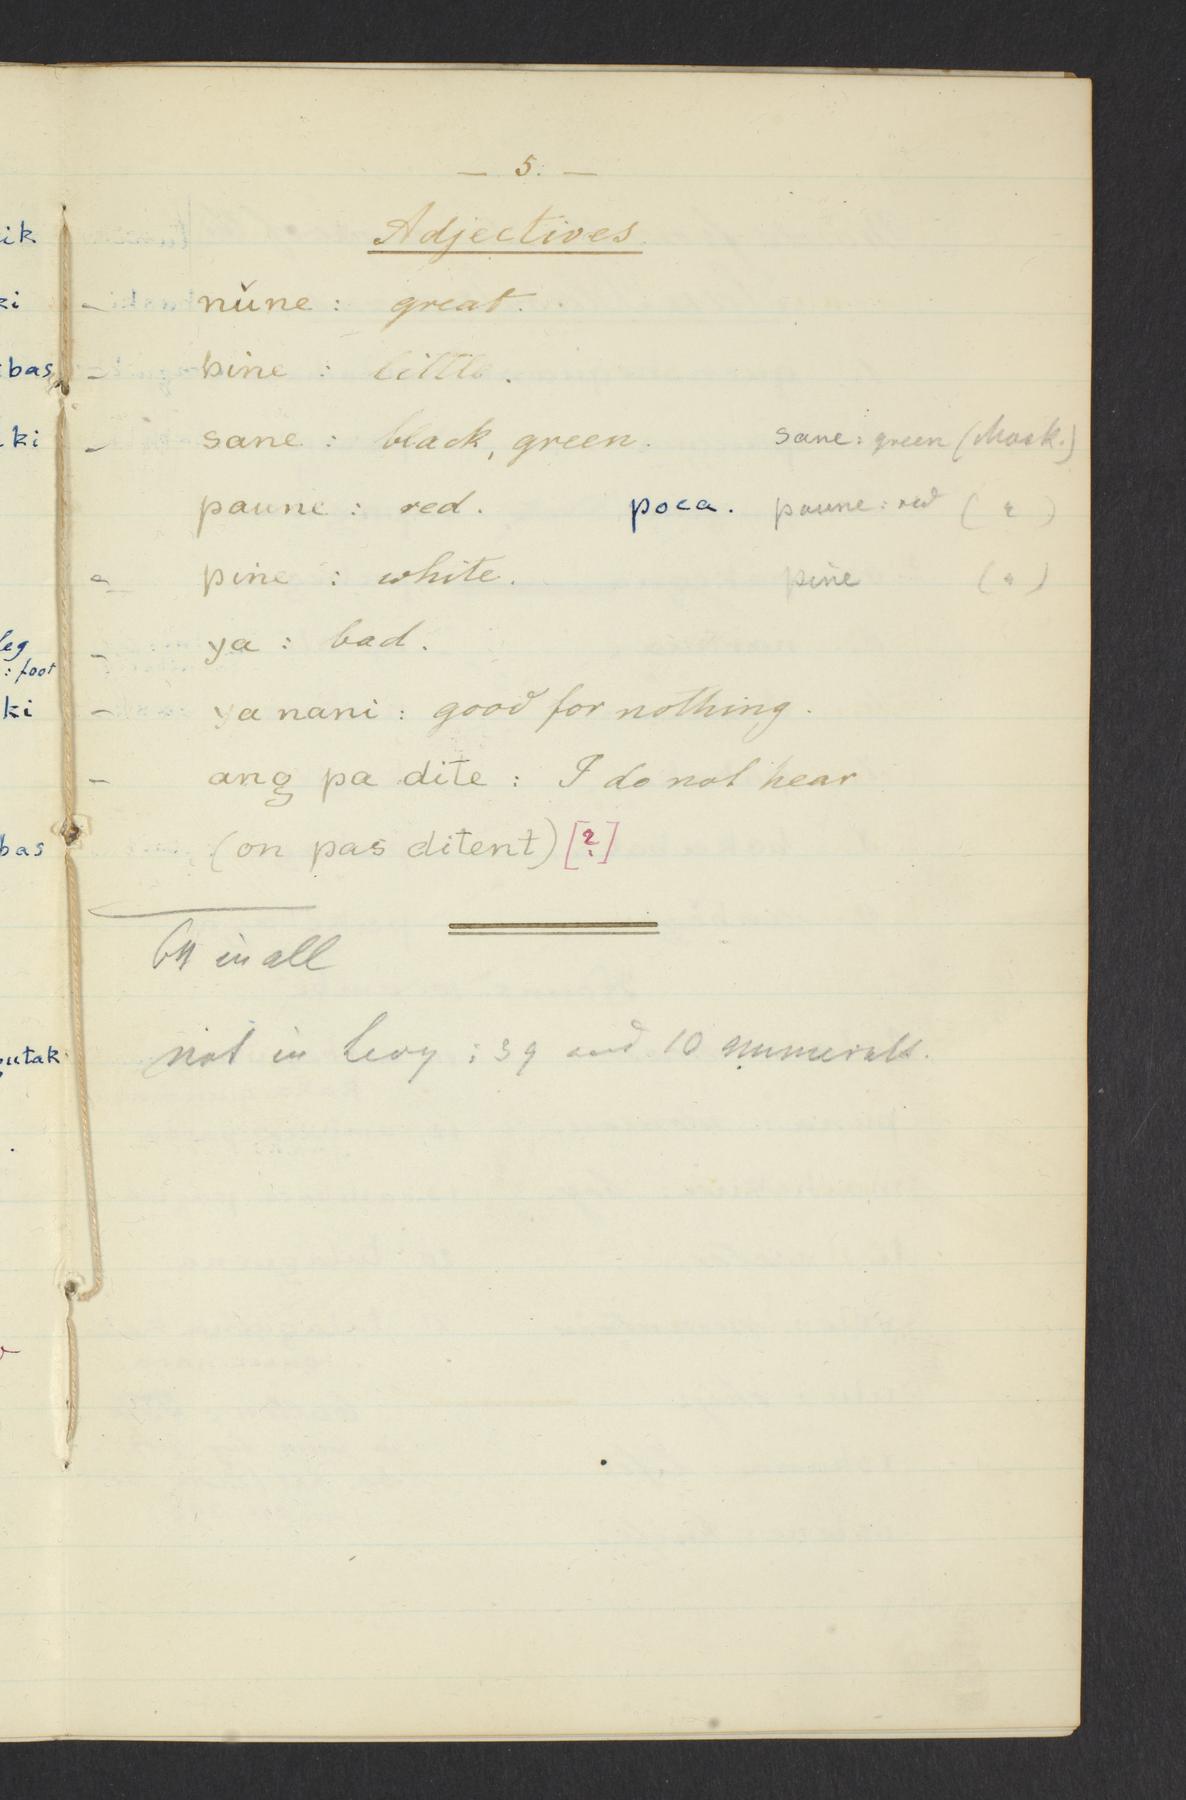 — 5. —
Adjectives
nŭne : great.
bine : little.
sane : black, green. sane : green (Mosk.)
paune : red. poca. paune : red ( " )
pine : white. pine ( " )
ya : bad.
ya nani : good for nothing.
ang pa dite : I do not hear
(on pas ditent) [?]
in all
not in Levy : 39 and 10 numerals.
ik
ki
bas
ki
leg
: foot
ki
bas
utak